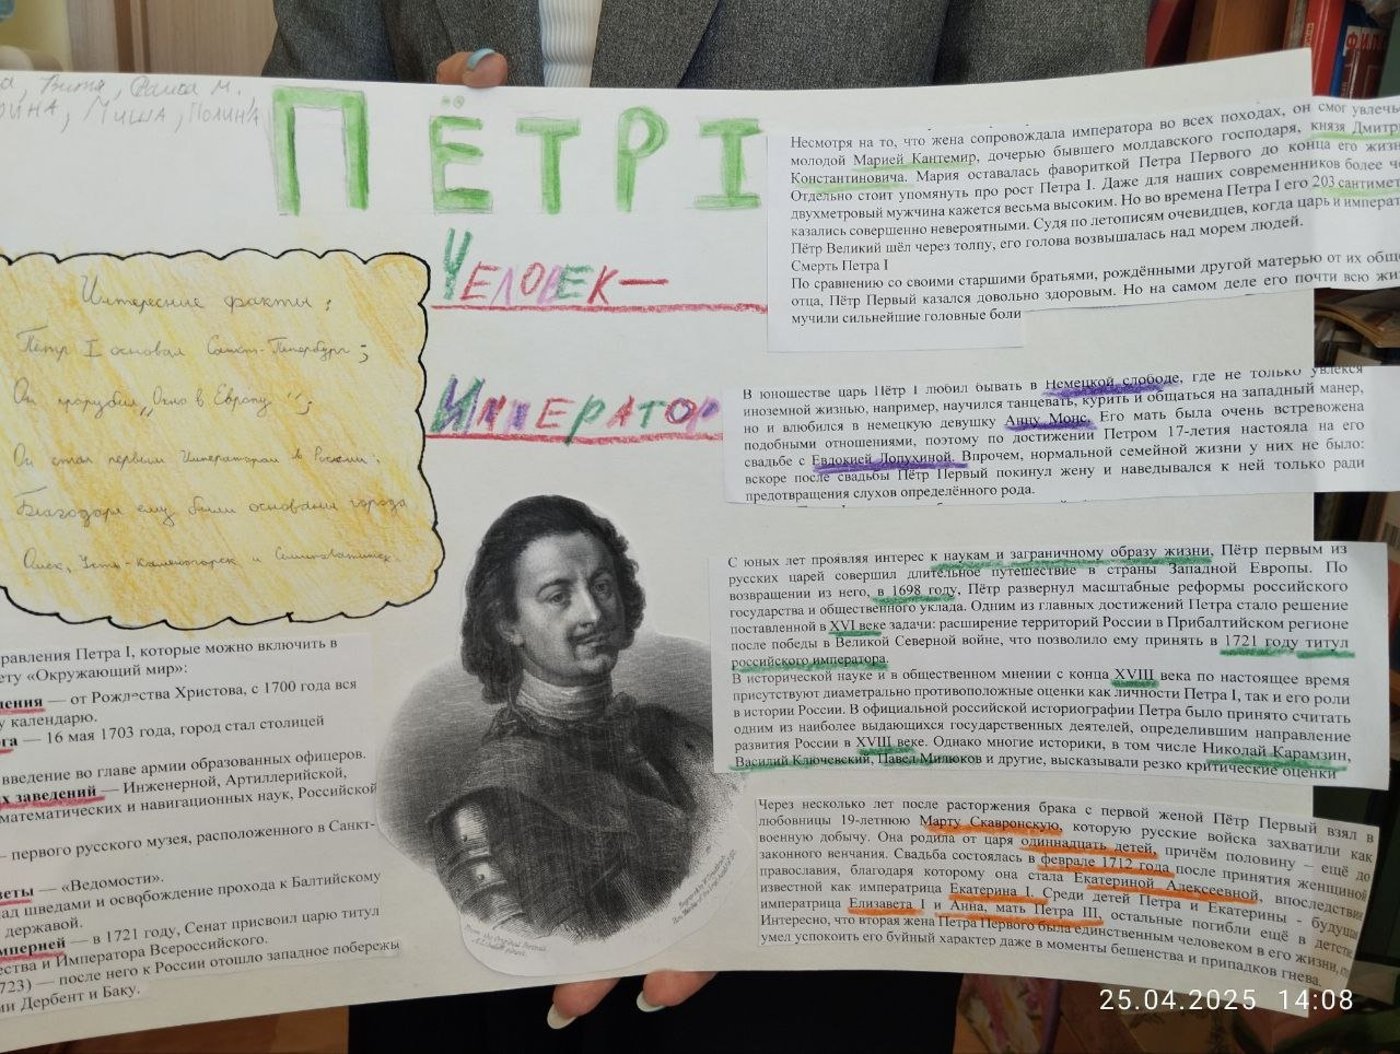 а, Витя, Саша М.
МИША, ПОЛИНА
ПЁТР I
ЧЕЛОВЕК—
ИМПЕРАТОР
Интересные факты:
Пётр I основал Санкт-Петербург;
Он прорубил „Окно в Европу";
Он стал первым Императором в России;
Благодаря ему были основаны города
Омск, Усть-Каменогорск и Семипалатинск.
равления Петра I, которые можно включить в
ету «Окружающий мир»:
ления — от Рождества Христова, с 1700 года вся
у календарю.
га — 16 мая 1703 года, город стал столицей
введение во главе армии образованных офицеров.
х заведений — Инженерной, Артиллерийской,
математических и навигационных наук, Российской
— первого русского музея, расположенного в Санкт-
еты — «Ведомости».
ад шведами и освобождение прохода к Балтийскому
державой.
мперией — в 1721 году, Сенат присвоил царю титул
ества и Императора Всероссийского.
723) — после него к России отошло западное побережье
ии Дербент и Баку.
Несмотря на то, что жена сопровождала императора во всех походах, он смог увлечь
молодой Марией Кантемир, дочерью бывшего молдавского господаря, князя Дмитр
Константиновича. Мария оставалась фавориткой Петра Первого до конца его жизн
Отдельно стоит упомянуть про рост Петра I. Даже для наших современников более че
двухметровый мужчина кажется весьма высоким. Но во времена Петра I его 203 сантимет
казались совершенно невероятными. Судя по летописям очевидцев, когда царь и императ
Пётр Великий шёл через толпу, его голова возвышалась над морем людей.
Смерть Петра I
По сравнению со своими старшими братьями, рождёнными другой матерью от их общ
отца, Пётр Первый казался довольно здоровым. Но на самом деле его почти всю жи
мучили сильнейшие головные боли
В юношестве царь Пётр I любил бывать в Немецкой слободе, где не только увлекся
иноземной жизнью, например, научился танцевать, курить и общаться на западный манер,
но и влюбился в немецкую девушку Анну Монс. Его мать была очень встревожена
подобными отношениями, поэтому по достижении Петром 17-летия настояла на его
свадьбе с Евдокией Лопухиной. Впрочем, нормальной семейной жизни у них не было:
вскоре после свадьбы Пётр Первый покинул жену и наведывался к ней только ради
предотвращения слухов определённого рода.
С юных лет проявляя интерес к наукам и заграничному образу жизни, Пётр первым из
русских царей совершил длительное путешествие в страны Западной Европы. По
возвращении из него, в 1698 году, Пётр развернул масштабные реформы российского
государства и общественного уклада. Одним из главных достижений Петра стало решение
поставленной в XVI веке задачи: расширение территорий России в Прибалтийском регионе
после победы в Великой Северной войне, что позволило ему принять в 1721 году титул
российского императора.
В исторической науке и в общественном мнении с конца XVIII века по настоящее время
присутствуют диаметрально противоположные оценки как личности Петра I, так и его роли
в истории России. В официальной российской историографии Петра было принято считать
одним из наиболее выдающихся государственных деятелей, определившим направление
развития России в XVIII веке. Однако многие историки, в том числе Николай Карамзин,
Василий Ключевский, Павел Милюков и другие, высказывали резко критические оценки
Через несколько лет после расторжения брака с первой женой Пётр Первый взял в
любовницы 19-летнюю Марту Скавронскую, которую русские войска захватили как
военную добычу. Она родила от царя одиннадцать детей, причём половину – ещё до
законного венчания. Свадьба состоялась в феврале 1712 года после принятия женщиной
православия, благодаря которому она стала Екатериной Алексеевной, впоследствии
известной как императрица Екатерина I. Среди детей Петра и Екатерины - будущая
императрица Елизавета I и Анна, мать Петра III, остальные погибли ещё в детстве.
Интересно, что вторая жена Петра Первого была единственным человеком в его жизни,
умел успокоить его буйный характер даже в моменты бешенства и припадков гнева.
25.04.2025 14:08